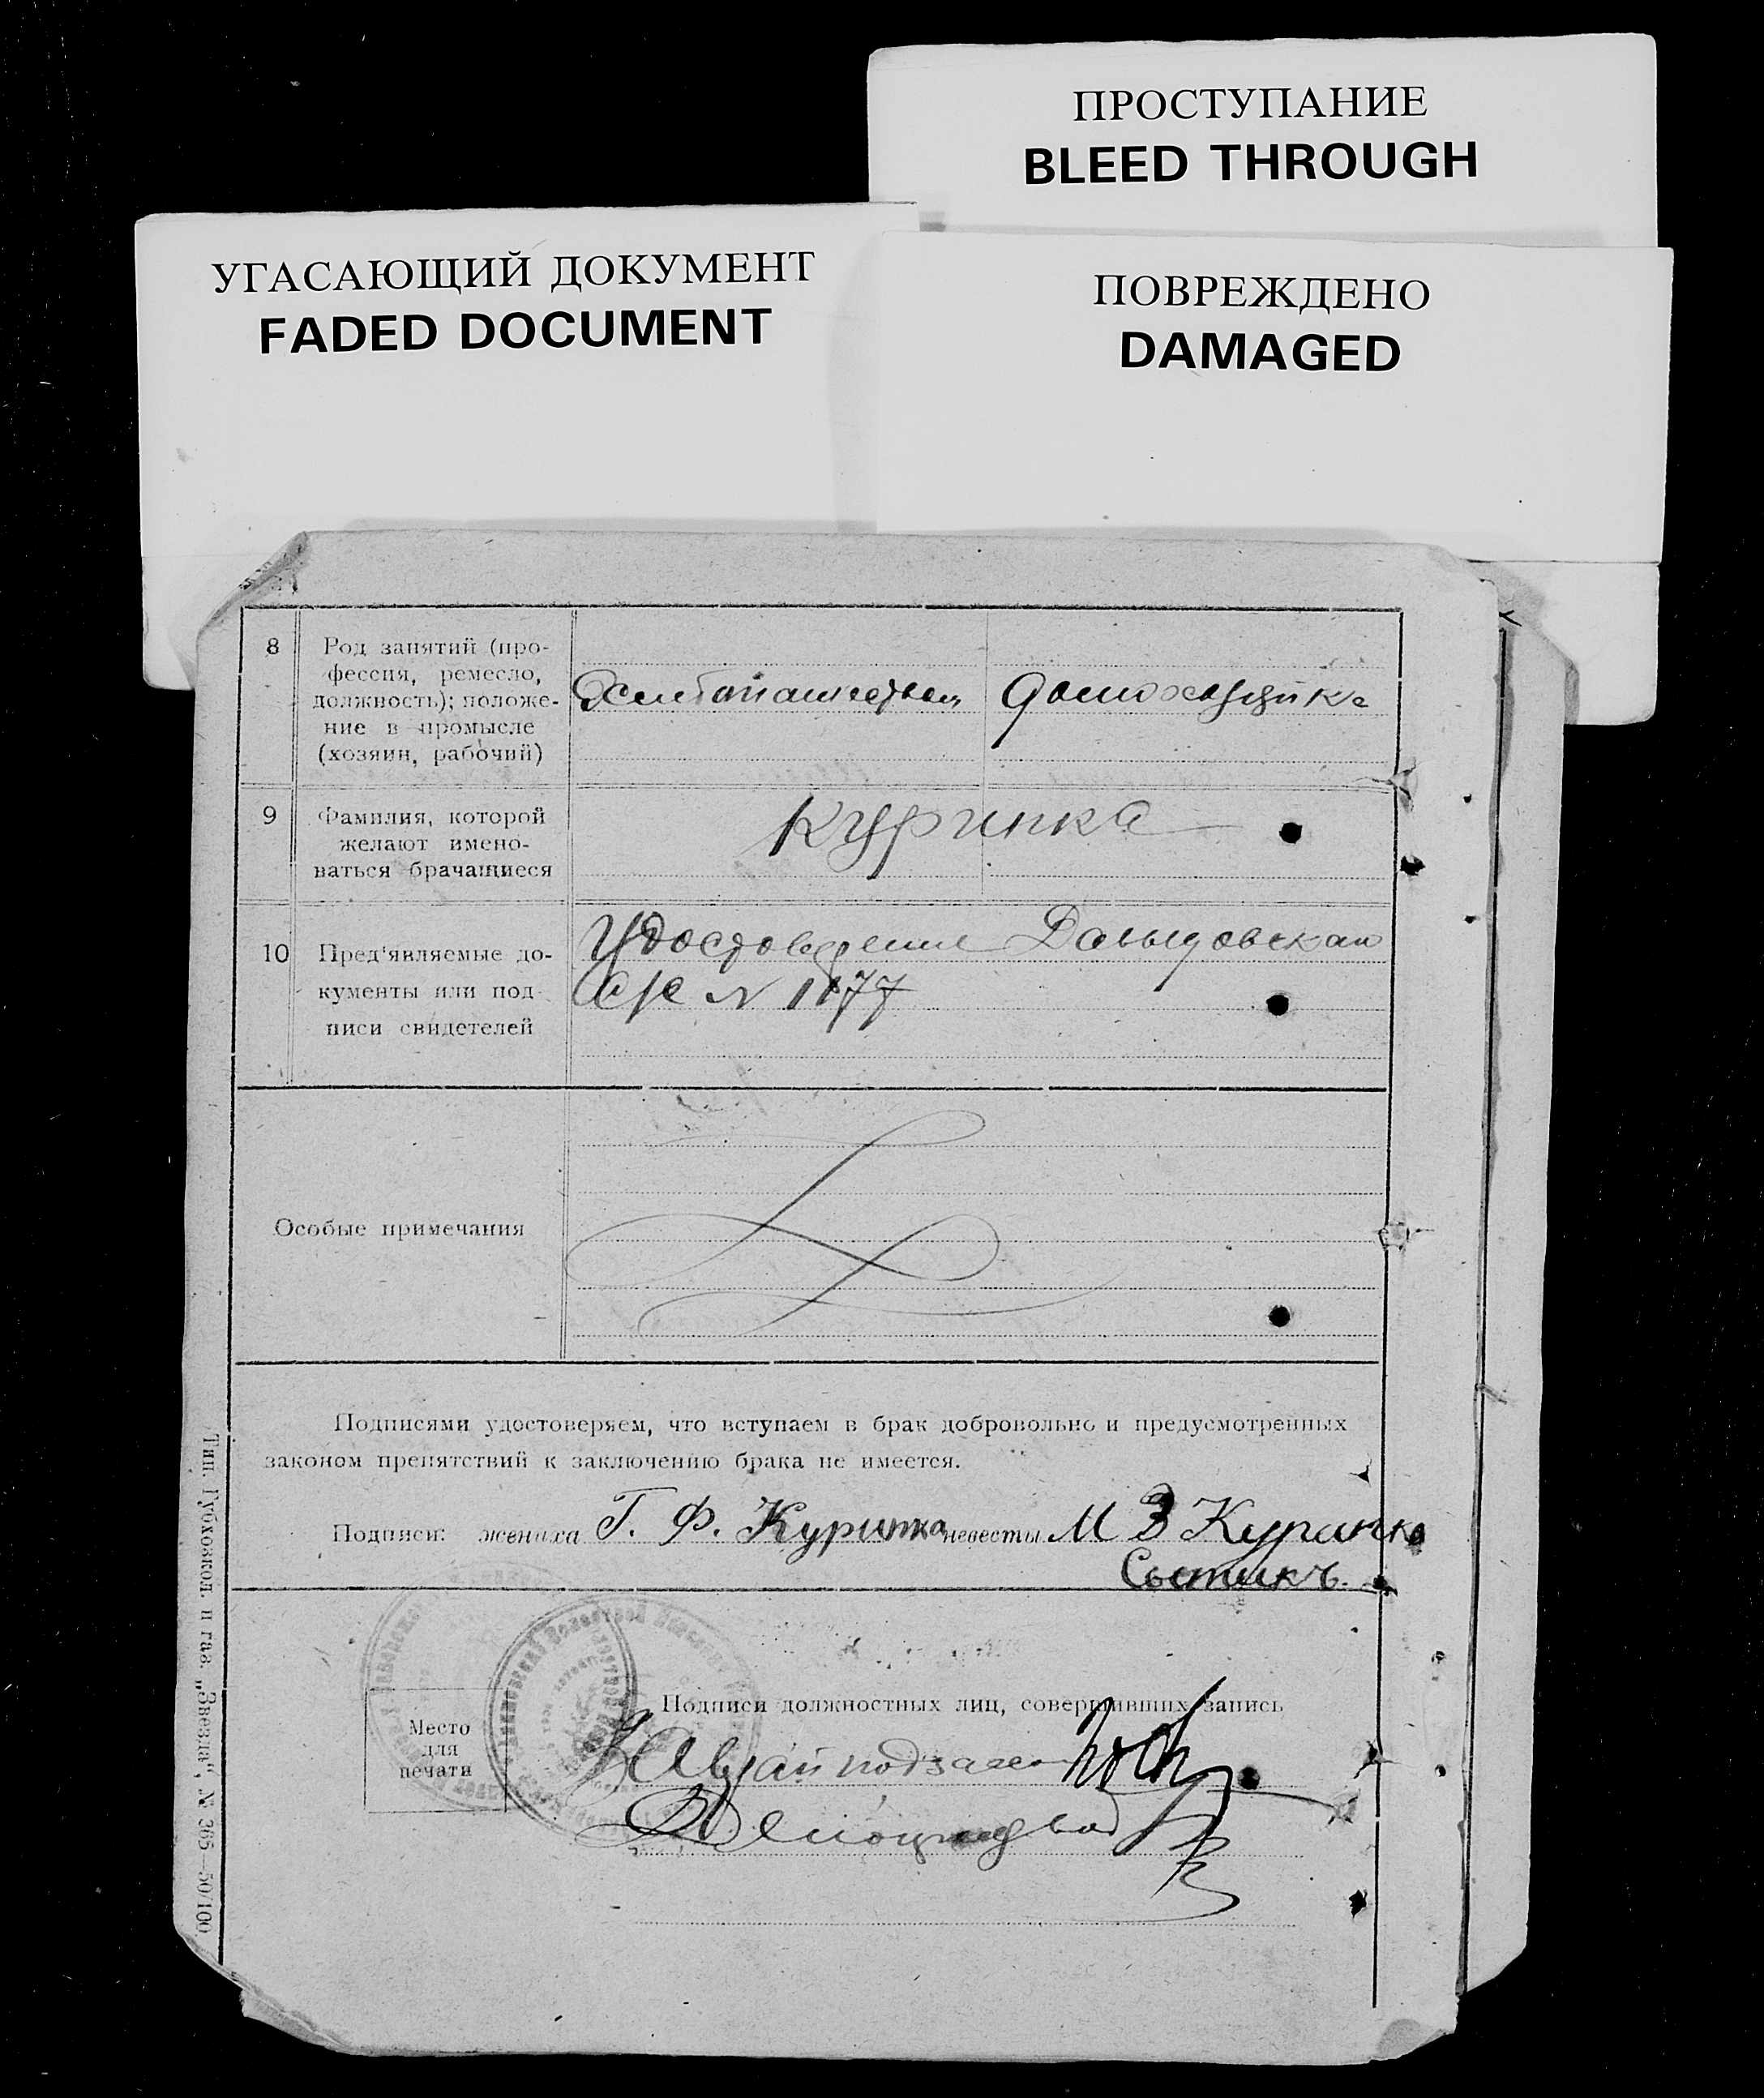 ПРОСТУПАНИЕ
BLEED THROUGH
УГАСАЮЩИЙ ДОКУМЕНТ
FADED DOCUMENT
ПОВРЕЖДЕНО
DAMAGED
8
Род занятий (про-
фессия, ремесло,
должность); положе-
ние в промысле
(хозяин, рабочий)
9
Фамилия, которой
желают имено-
ваться брачащиеся
Куринка
10
Пред'являемые до-
кументы или под-
писи свидетелей
Удостоверение Давыдовская
С/С № 1877
Особые примечания
Подписями удостоверяем, что вступаем в брак добровольно и предусмотренных
законом препятствий к заключению брака не имеется.
Подписи: жениха Г. Ф. Куринка невесты М З Куринка
Сытикъ
Подписи должностных лиц, совершивших запись
Место
для
печати
Зав
Тип. Губхозкол. и газ. „Звезда“, № 365—50/100